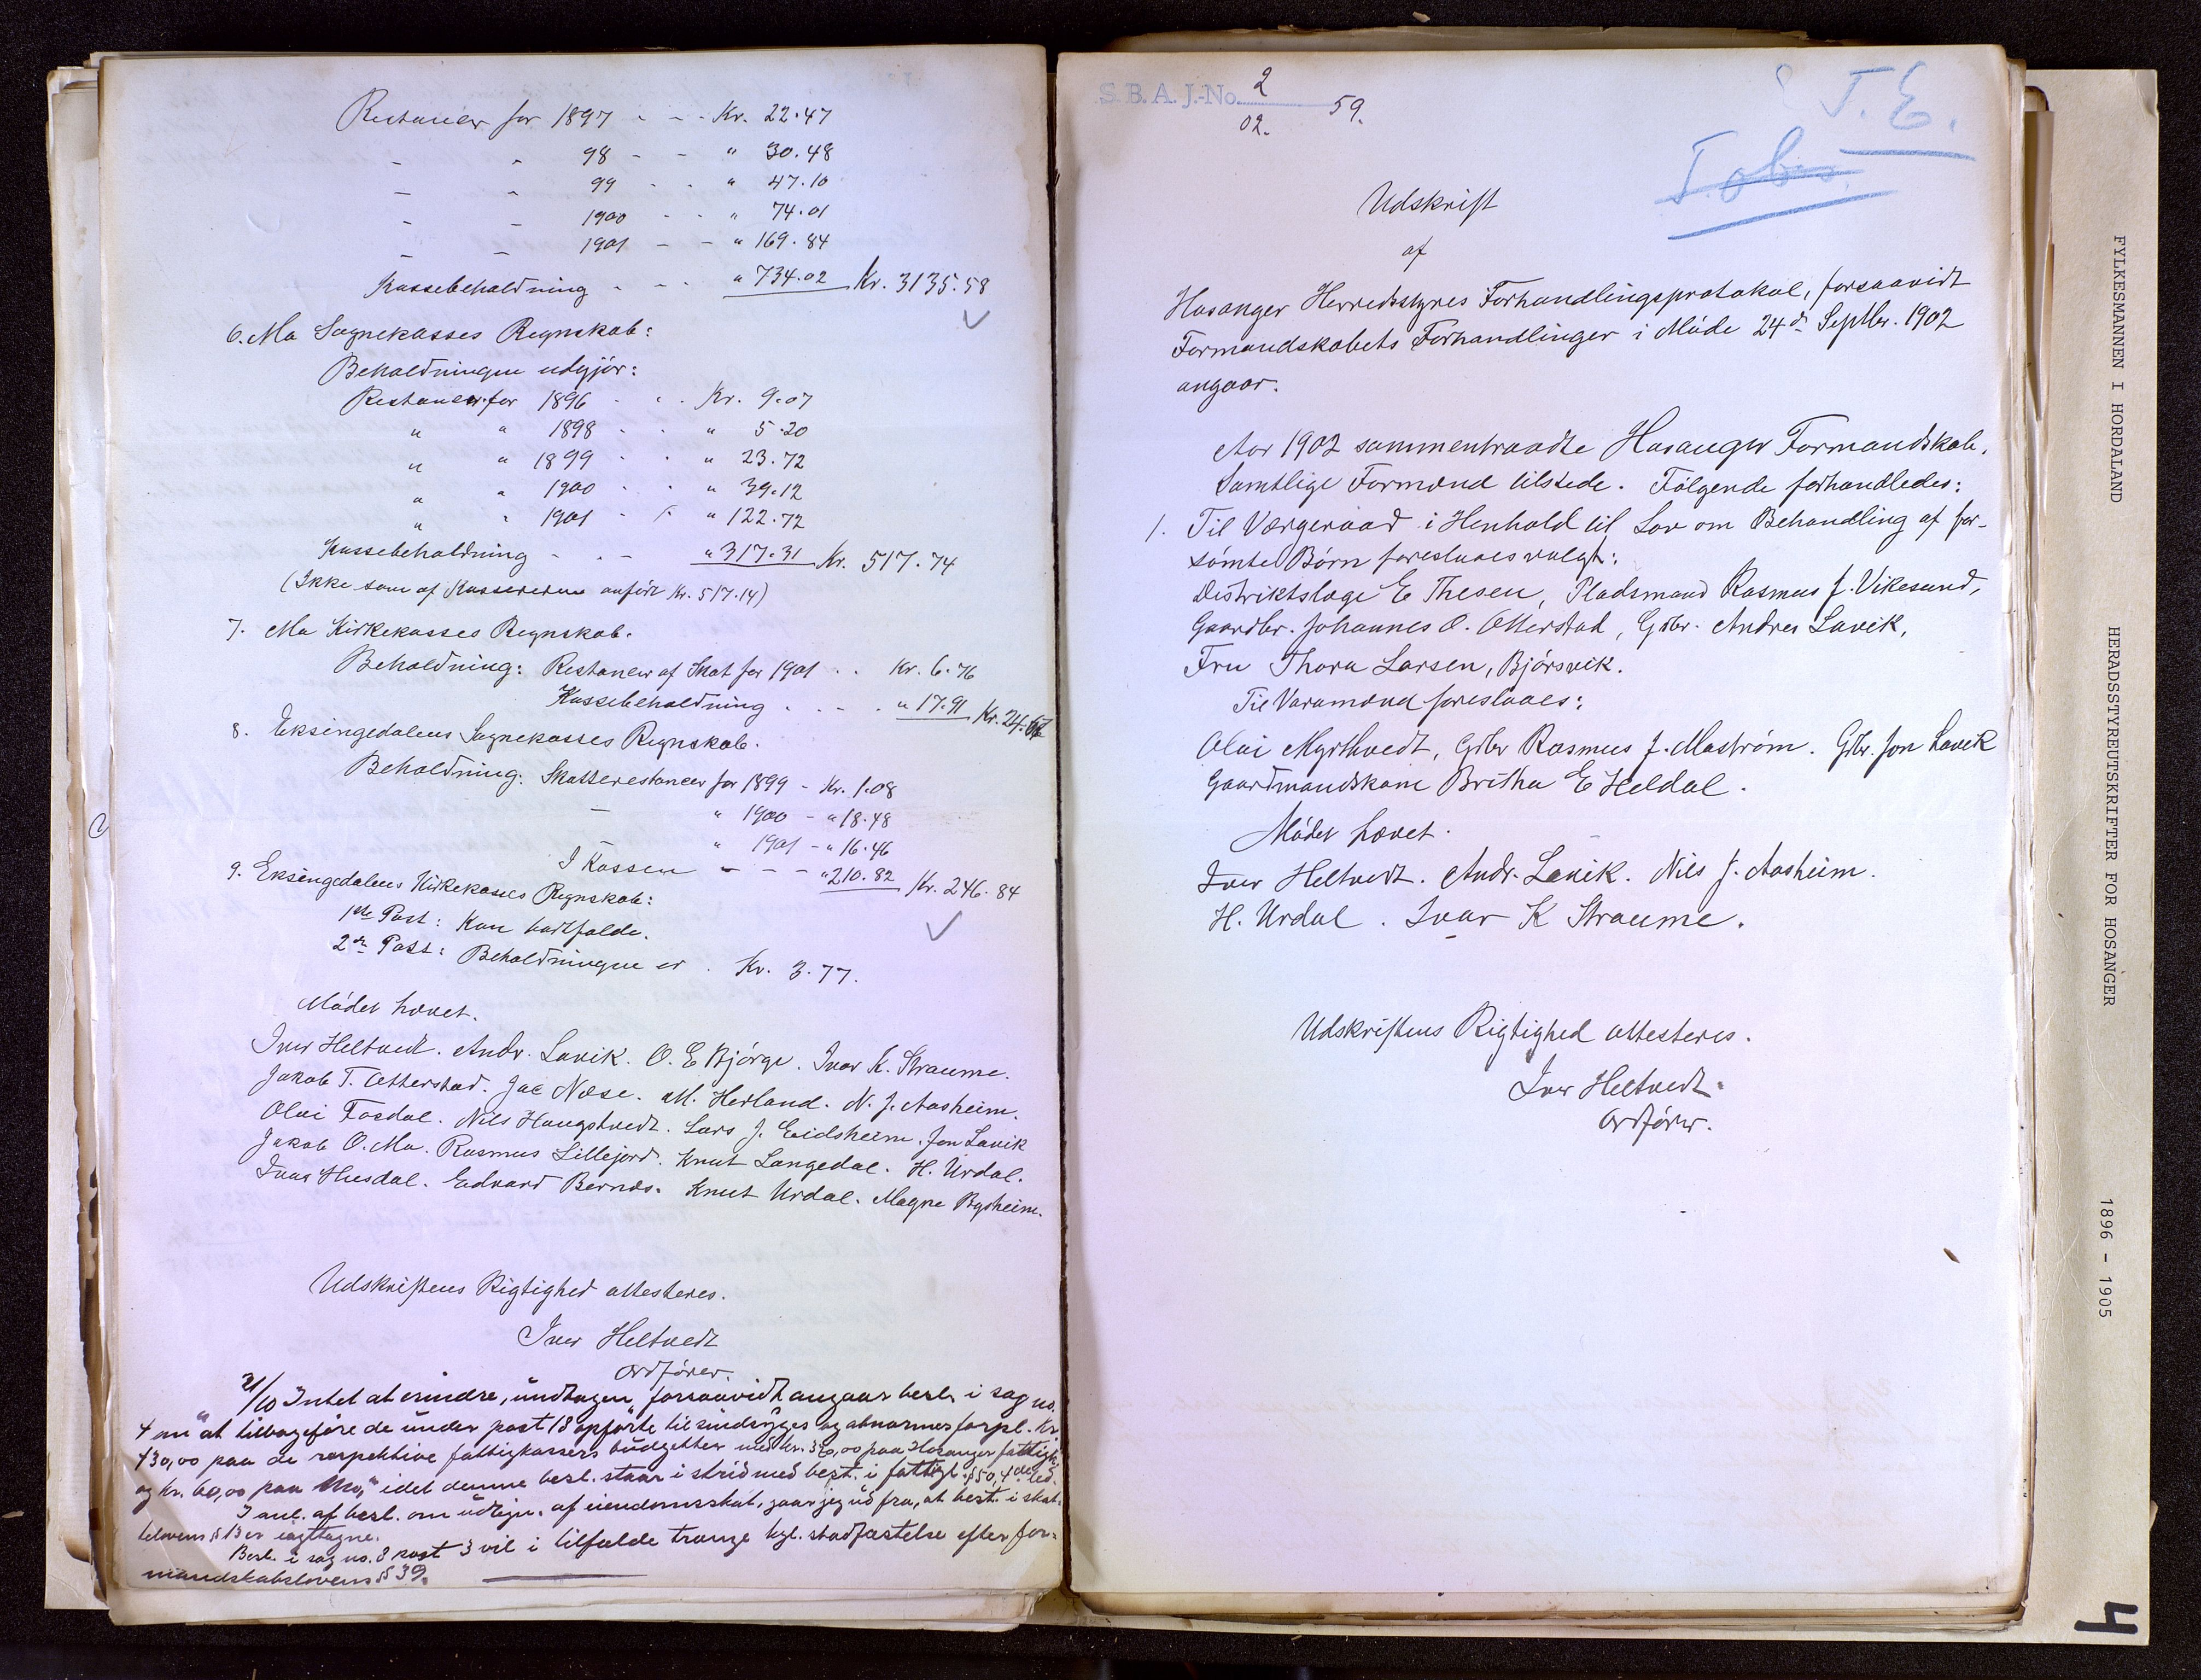 Restancer for 1897 - - - Kr. 22.47
- " 98 - - " 30.48
- " 99 - - " 47.10
- - 1900 - - " 74.01
- - 1901 - - " 169.84
Kassebeholdning - - - " 734.02 Kr. 3135.58
6. Mo Sognekasses Regnskab:
Beholdningen udgjør:
Restancer for 1896 - - Kr. 9.07
" " 1898 - - " 5.20
" " 1899 - - " 23.72
" " 1900 - - " 39.12
" " 1901 - - " 122.72
Kassebeholdning - - - " 317.31 Kr. 517.74
(Ikke som af Kassereren anført Kr. 517.14)
7. Mo Kirkekasses Regnskab.
Beholdning: Restancer af Skat for 1901 . . Kr. 6.76
Kassebeholdning . . - . " 17.91 Kr. 24.67
8. Eksingedalens Sognekasses Regnskab.
Beholdning: Skatterestancer for 1899 - Kr. 1.08
- " 1900 - " 18.48
- " 1901 - " 16.46
I Kassen - - - " 210.82 Kr. 246.84
9. Eksingedalens Kirkekasses Regnskab:
1ste Post: Kan bortfalde.
2den Post: Beholdningen er . Kr. 3.77.
Mødet hævet.
Iver Heltvedt. Andr. Lavik. O. E Bjørge. Ivar K. Straume.
Jakob T. Otterstad. Jac Næse. M. Herland. N. J. Aasheim.
Olai Fosdal. Nils Haugstvedt. Lars J. Eidsheim. Jon Lavik
Jakob O. Mo. Rasmus Lillejord. Knut Langedal. H. Urdal.
Ivar Husdal. Edvard Bernds. Knut Urdal. Magne Bysheim.
Udskriftens Rigtighed attesteres.
Iver Heltvedt
Ordfører.
21/10 Intet at erindre, undtagen, forsaavidt angaar besl. i sag no.
4 om "at tilbageføre de under post 18 opførte til sindsyges og abnormes forpl. Kr.
430,00 paa de respektive fattigkassers budgetter med kr. 370,00 paa Hosanger fattigk.
og kr. 60,00 paa Mo," idet denne besl. staar i strid med best. i fattigl. § 50, 4de led.
I anl. af besl. om udlign. af eiendomsskat, gaar jeg ud fra, at best. i skat-
telovens § 13 er iagttagne.
Besl. i sag no. 8 post 3 vil i tilfælde trænge kgl. stadfæstelse efter for-
mandskabslovens § 39.
S. B. A. J.-No. 2 59.
02.
T. E.
Udskrift
af
Hosanger Herredsstyres Forhandlingsprotokol, forsaavidt
Formandskabets Forhandlinger i Møde 24de Septbr. 1902
angaar.
Aar 1902 sammentraadte Hosanger Formandskab.
Samtlige Formænd tilstede. Følgende forhandledes:
1. Til Værgeraad i Henhold til Lov om Behandling af for-
sømte Børn foreslaaes valgt:
Distriktslæge E Thesen, Pladsmand Rasmus J. Vikesund,
Gaardbr. Johannes O. Otterstad, Gdbr. Andres Lavik,
Fru Thora Larsen, Bjørsvik.
Til Varamænd foreslaaes:
Olai Myrthvedt, Gdbr Rasmus J. Mostrøm. Gdbr. Jon Lavik
Gaardmandskone Britha E Heldal.
Mødet hævet.
Iver Heltvedt. Andr. Lavik. Nils J. Aasheim.
H. Urdal. Ivar K Straume.
Udskriftens Rigtighed attesteres.
Iver Heltvedt.
Ordfører.
FYLKESMANNEN I HORDALAND HERADSSTYREUTSKRIFTER FOR HOSANGER 1896 - 1905
4